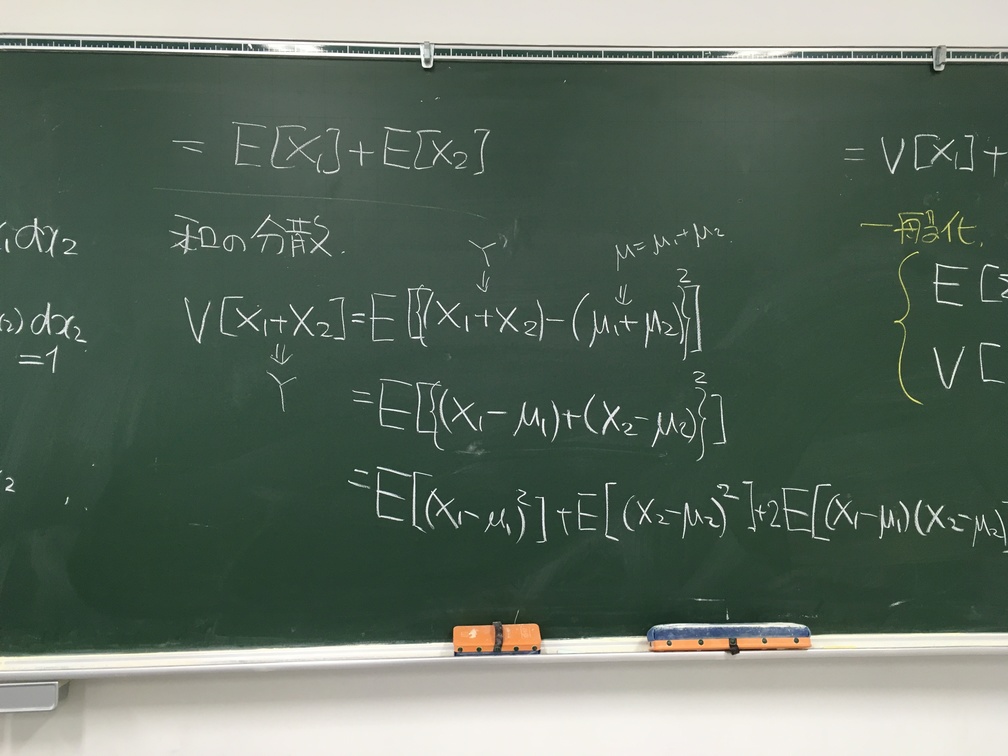 x₁dx₂
x₂)dx₂
=1
₂
= E[X₁]+E[X₂]
和の分散.
Y
μ=μ₁+μ₂.
⇓ ⇓
V[X₁+X₂]=E[{(X₁+X₂)-(μ₁+μ₂)}²]
⇓
Y
=E[{(X₁-μ₁)+(X₂-μ₂)}²]
=E[(X₁-μ₁)²]+E[(X₂-μ₂)²]+2E[(X₁-μ₁)(X₂-μ₂)]
= V[X₁]+
一般化.
E[Σ
V[